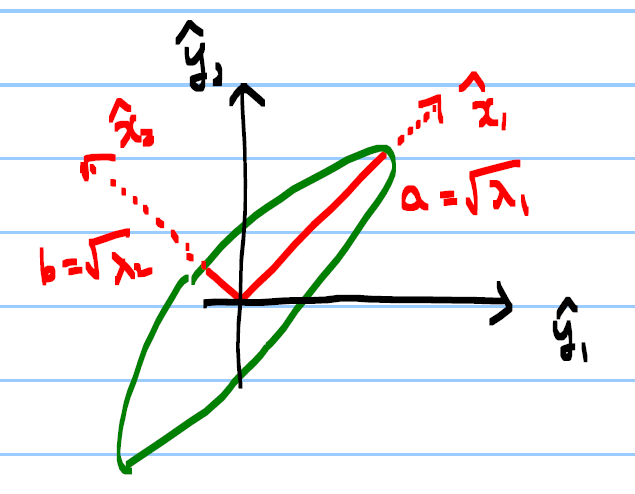 ŷ₂
x̂₂
x̂₁
a = √λ₁
b = √λ₂
ŷ₁